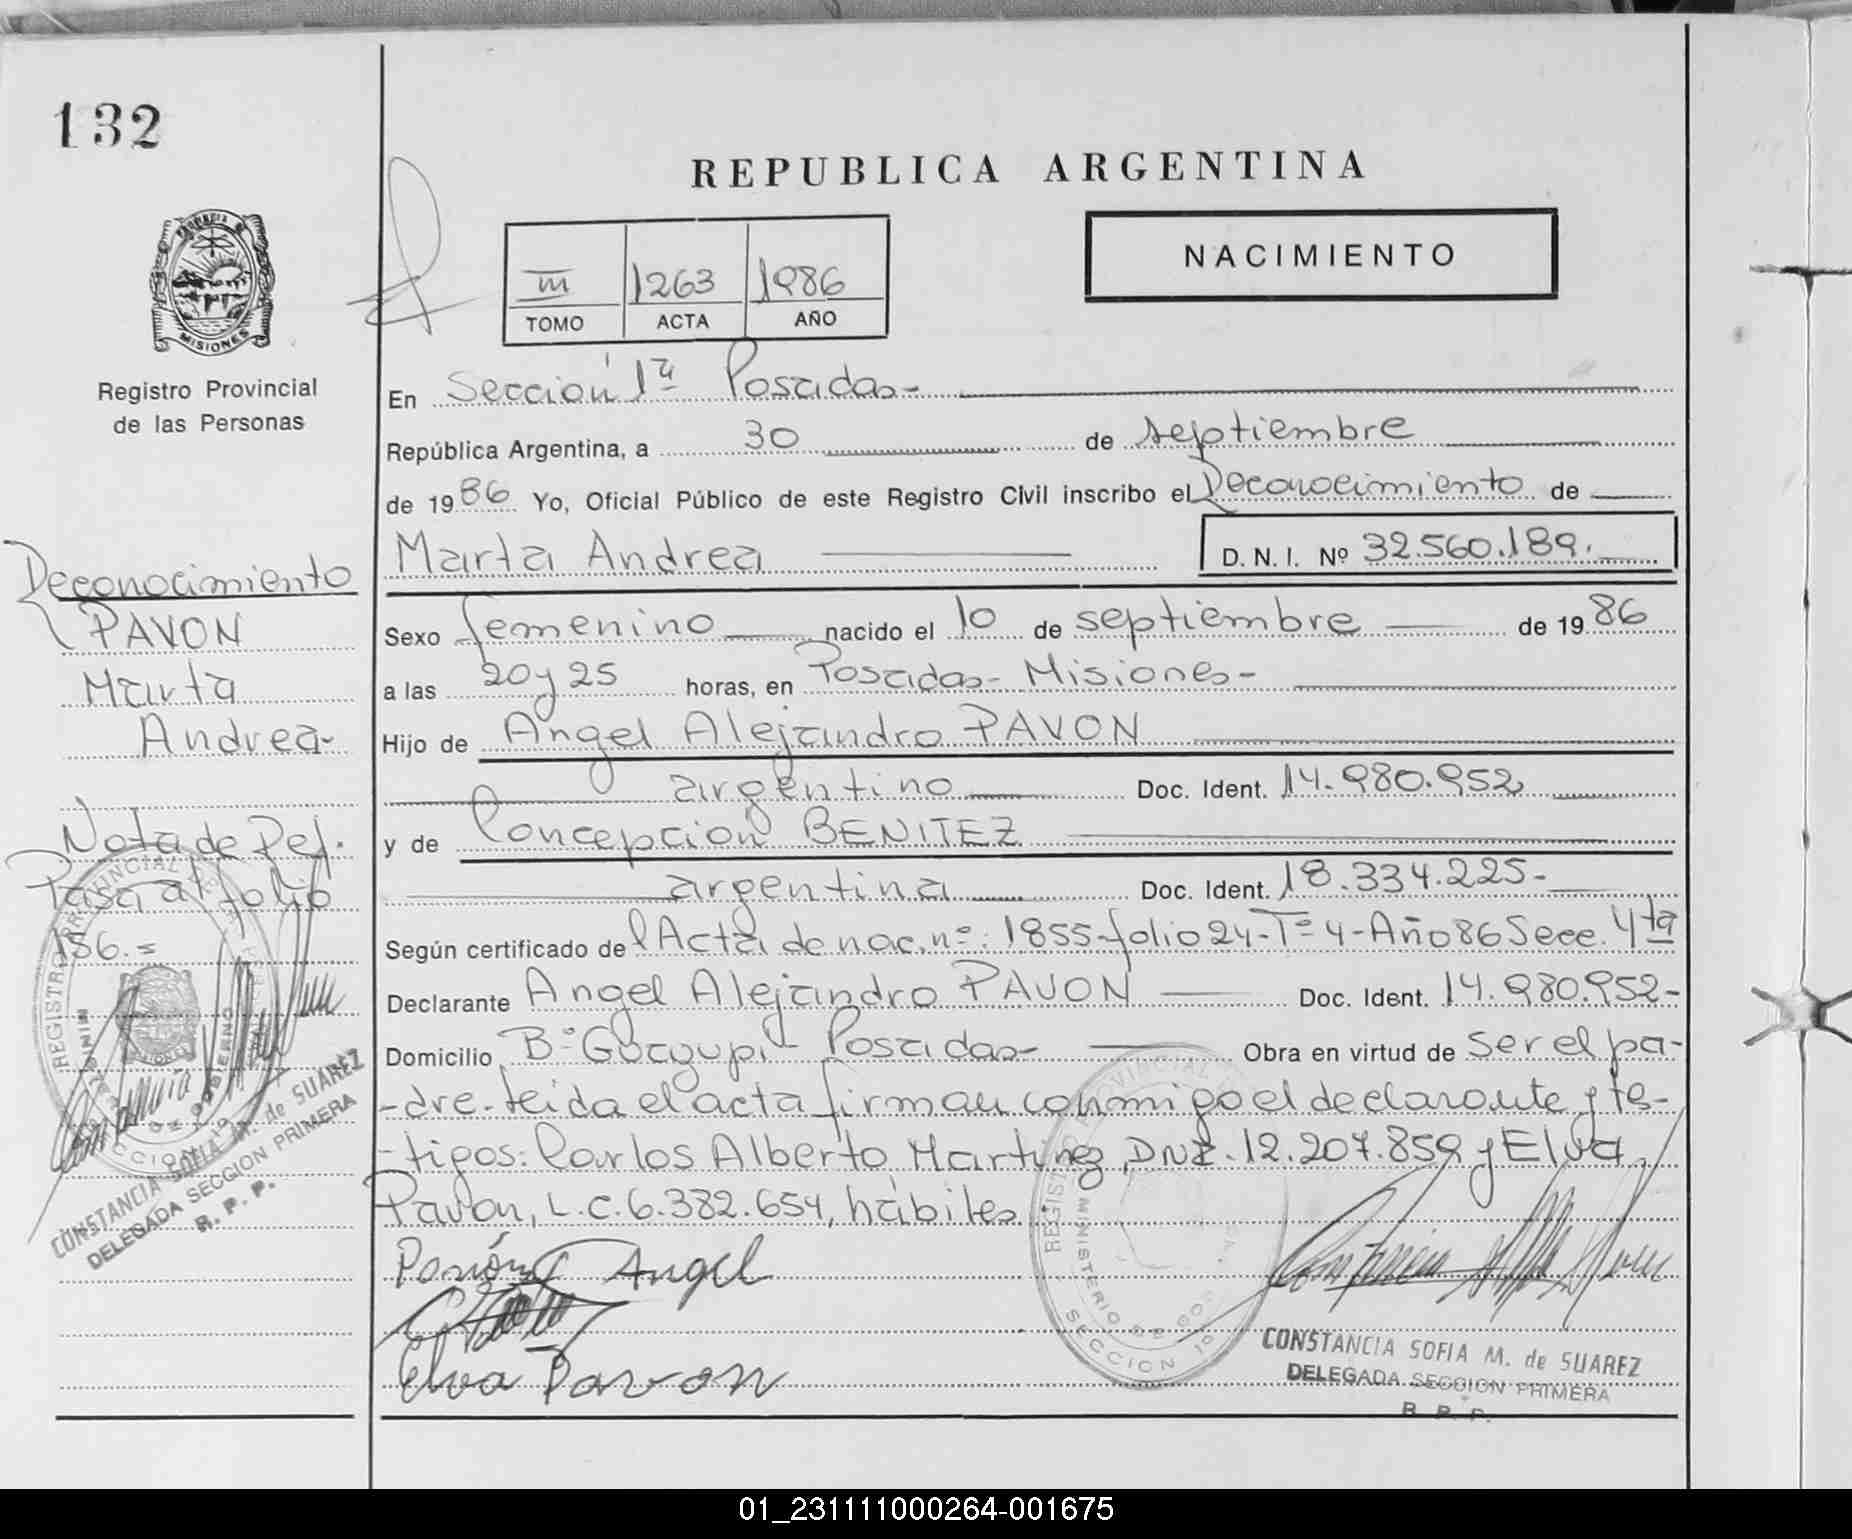 132
REPUBLICA ARGENTINA
PROVINCIA D
MISIONES
Registro Provincial
de las Personas
III 1263 1986
TOMO ACTA AÑO
NACIMIENTO
En Sección 1ª Posadas-
República Argentina, a 30 de septiembre
de 1986 Yo, Oficial Público de este Registro Civil inscribo el Reconocimiento de
Marta Andrea D.N.I. Nº 32.560.189.
Sexo femenino nacido el 10 de septiembre de 1986
a las 20 y 25 horas, en Posadas- Misiones-
Hijo de Angel Alejandro PAVON
argentino Doc. Ident. 14.980.952
y de Concepcion BENITEZ
argentina Doc. Ident. 18.334.225-
Según certificado de l'Acta de nac. nº: 1855-folio 24-Tº 4-Año 86 Secc. 4ta
Declarante Angel Alejandro PAVON Doc. Ident. 14.980.952-
Domicilio Bº Posadas- Obra en virtud de ser el pa-
-dre- leida el acta firman conmigo el declarante y tes-
-tigos: Carlos Alberto Martinez, DNI. 12.207.859 y Elva
Pavon, L.C. 6.382.654, hábiles
Pavón Angel
Elva Pavon
CONSTANCIA SOFIA M. de SUAREZ
DELEGADA SECCION PRIMERA
R. P. P.
REGISTRO PROVINCIAL
MINISTERIO DE GOB
SECCION 1º
Reconocimiento
PAVON
Marta
Andrea-
Nota de Ref.
Pasa al folio
156.=
REGISTRO PROVINCIAL
MINISTERIO DE GOBIERNO
SECCION
CONSTANCIA SOFIA M. de SUAREZ
DELEGADA SECCION PRIMERA
R. P. P.
01_231111000264-001675